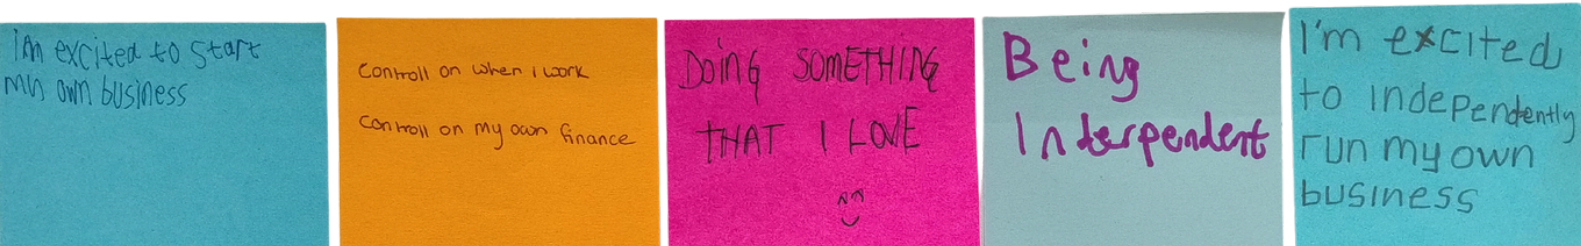 I'm excited to start
my own business
Controll on when i work
Controll on my own finance
DOING SOMETHING
THAT I LOVE
Being
Interpendent
I'm excited
to independently
run my own
business